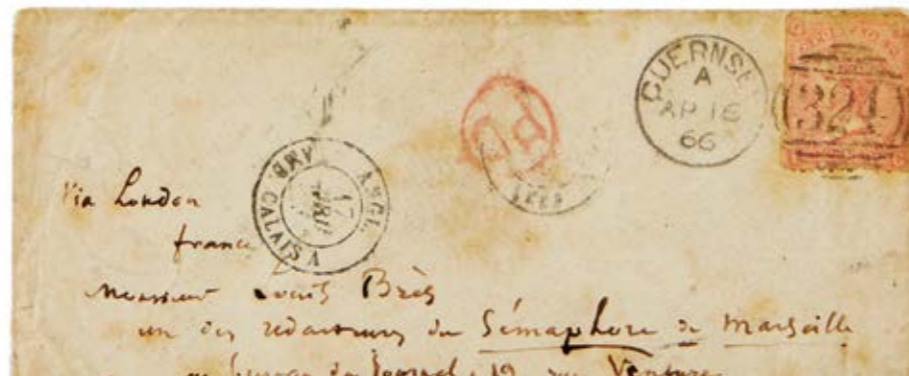 GUERNSEY
A
AP 16
66
324
PD
ANGL.
AMB. CALAIS A
17
AVRIL
Via London
france
Monsieur Louis Brès
un des rédacteurs du Sémaphore de Marseille
au bureau du Journal, 19 rue Venture